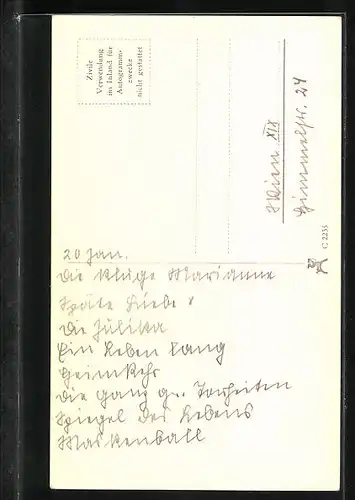 Zivile
Verwendung
im Inland für
Autogramm-
zwecke
nicht gestattet
Wien XIX
Himmelstr. 24
C 2235
20 Jan.
Die kluge Marianne
Späte Liebe x
Die Julika
Ein Leben lang
Heimkehr
Die ganz gr. Torheiten
Spiegel des Lebens
Maskenball